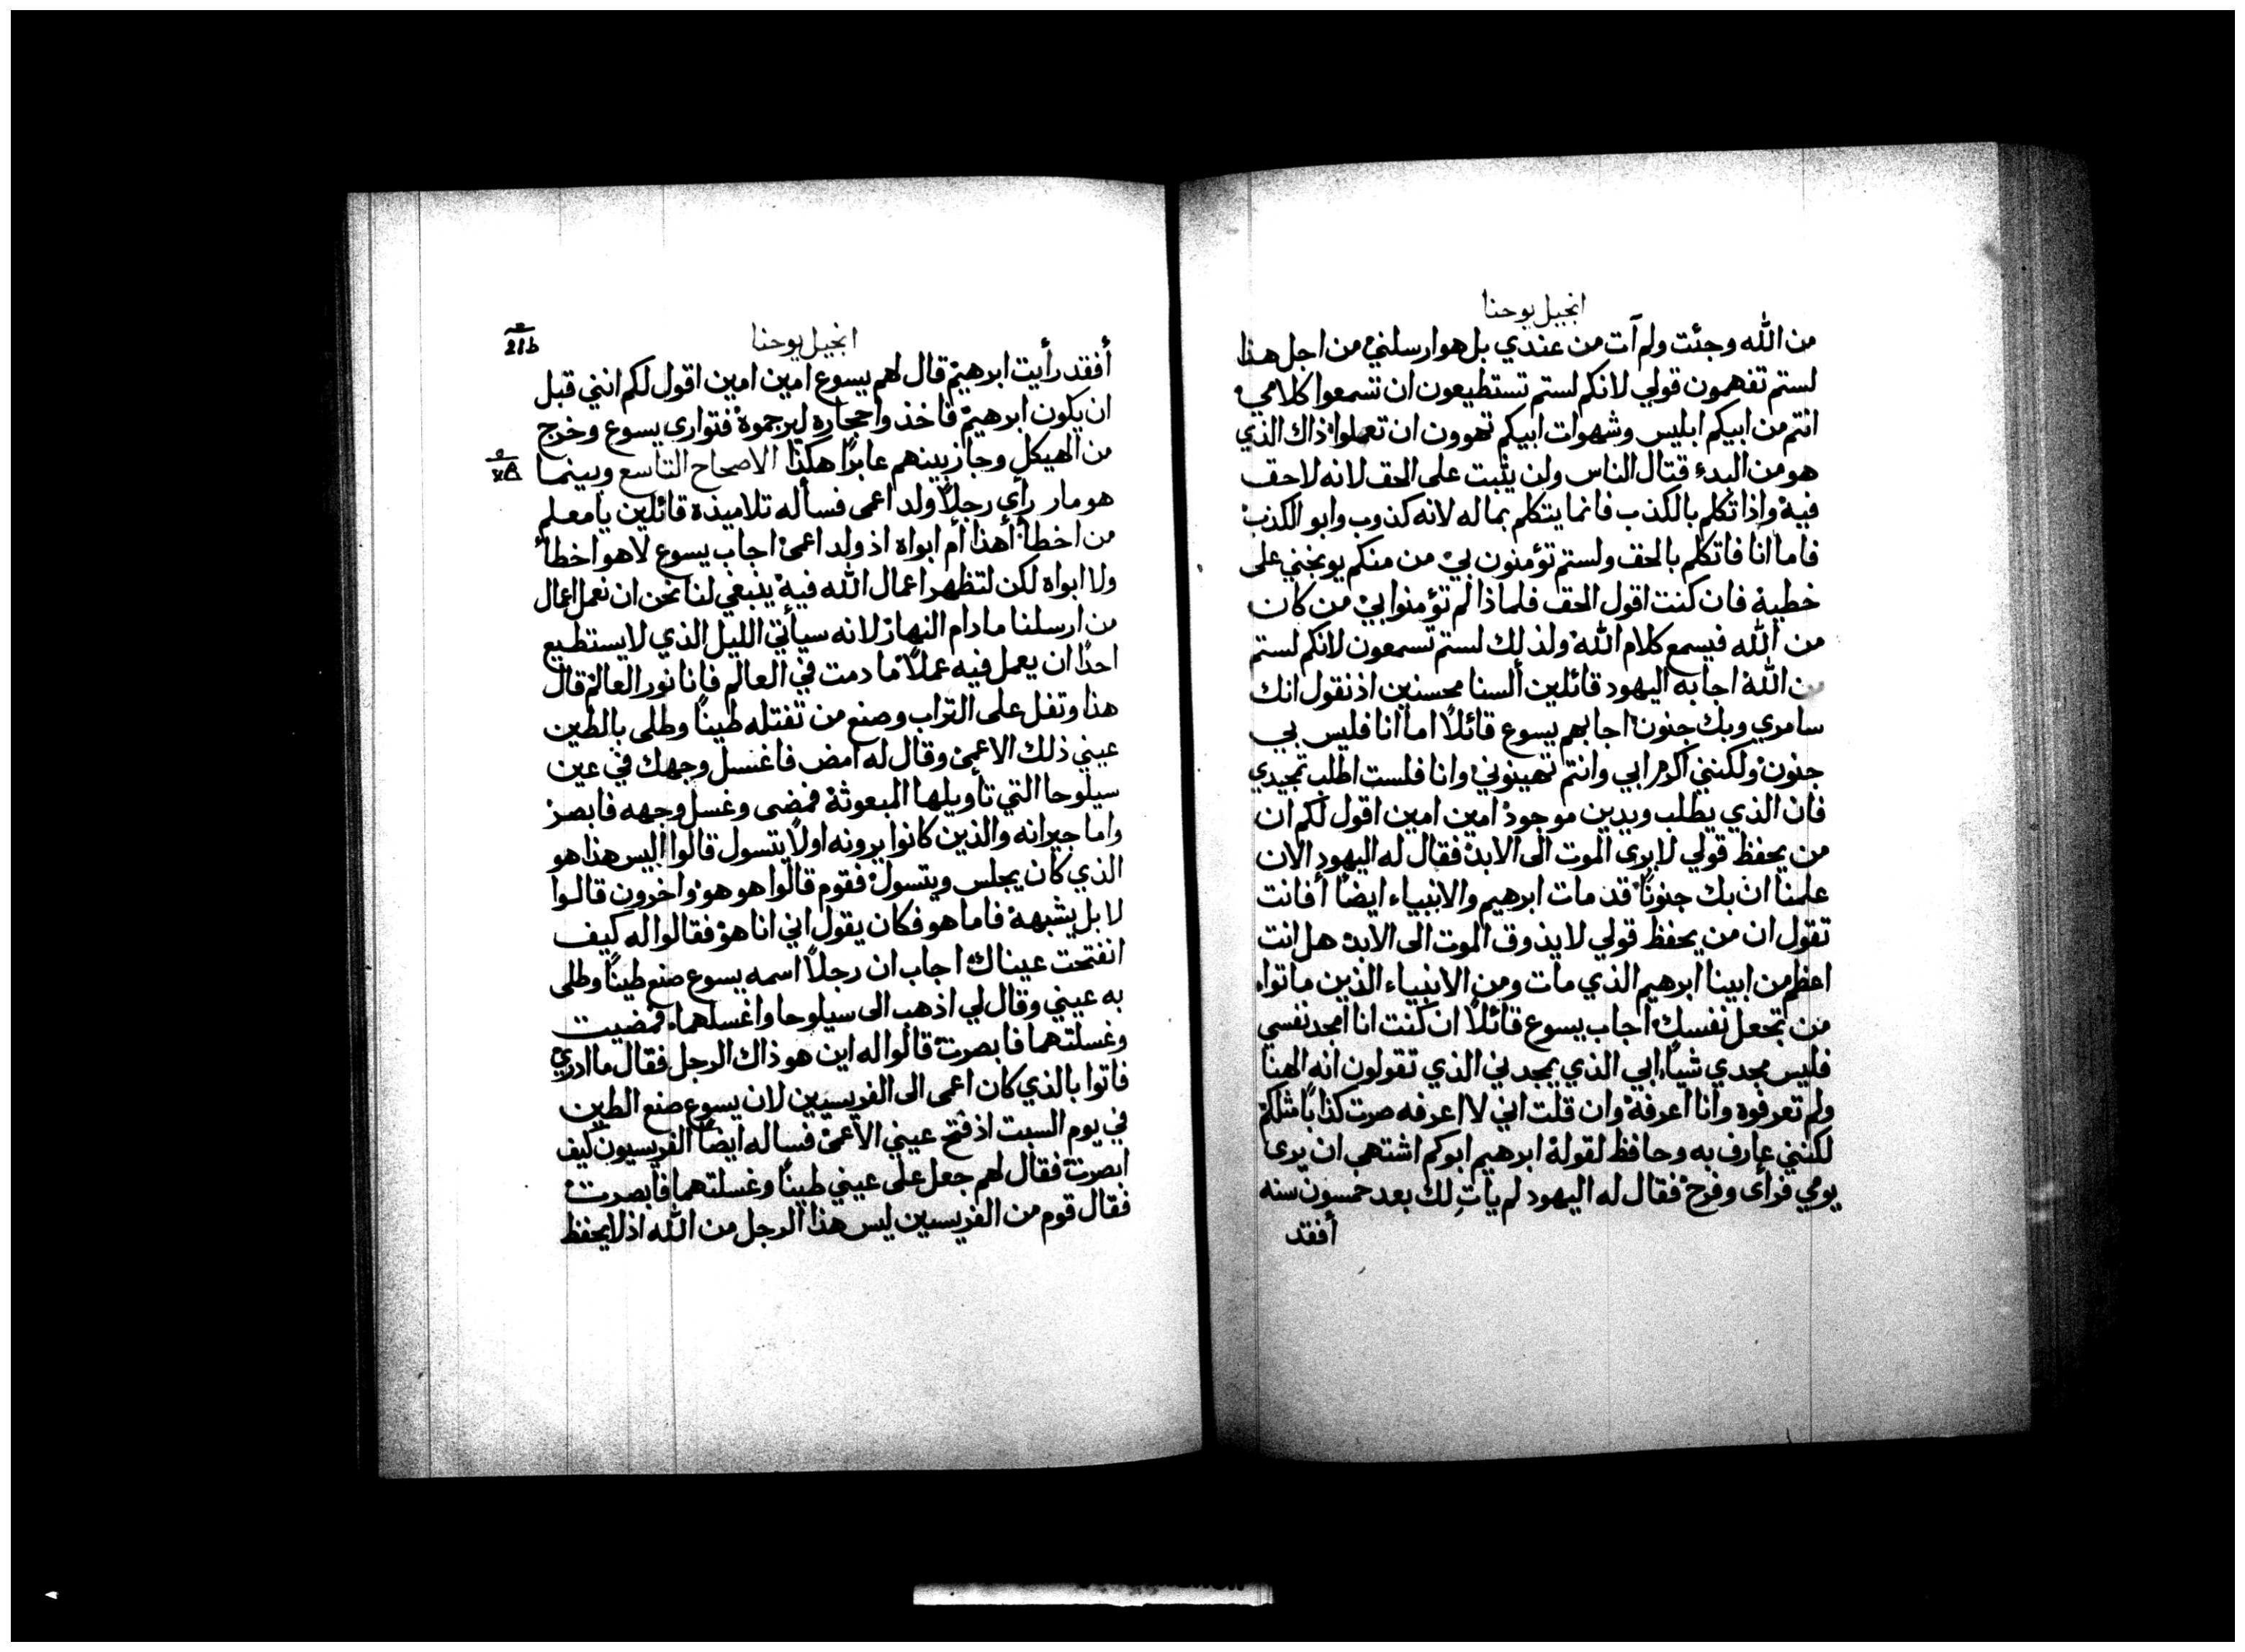 انجيل يوحنا
من الله وجئت ولم آت من عندي بل هو ارسلني من اجل هذا
لستم تفهمون قولي لانكم لستم تستطيعون ان تسمعوا كلامي
انتم من ابيكم ابليس وشهوات ابيكم تهوون ان تعملوا ذاك الذي
هو من البدء قتال الناس ولن يثبت على الحق لانه لا حق
فيه واذا تكلم بالكذب فانما يتكلم بما له لانه كذوب وابو الكذب
فاما انا فاتكلم بالحق ولستم تؤمنون بي من منكم يوبخني على
خطية فان كنت اقول الحق فلماذا لم تؤمنوا بي من كان
من الله فيسمع كلام الله ولذلك لستم تسمعون لانكم لستم
من الله اجابه اليهود قائلين ألسنا محسنين اذ نقول انك
سامري وبك جنون اجابهم يسوع قائلاً اما انا فليس بي
جنون ولكنني اكرم ابي وانتم تهينوني وانا فلست اطلب تمجيدي
فان الذي يطلب ويدين موجود امين امين اقول لكم ان
من يحفظ قولي لا يرى الموت الى الابد فقال له اليهود الان
علمنا ان بك جنونًا قد مات ابرهيم والانبياء ايضًا أفانت
تقول ان من يحفظ قولي لا يذوق الموت الى الابد هل انت
اعظم من ابينا ابرهيم الذي مات ومن الانبياء الذين ماتوا
من تجعل نفسك اجاب يسوع قائلاً ان كنت انا امجد نفسي
فليس مجدي شيأ ابي الذي يمجدني الذي تقولون انه الهنا
ولم تعرفوه وانا اعرفه وان قلت اني لا اعرفه صرت كذابًا مثلكم
لكنني عارف به وحافظ لقوله ابرهيم ابوكم اشتهى ان يرى
يومي فرأى وفرح فقال له اليهود لم يأتِ لك بعد خمسون سنه
أفقد
انجيل يوحنا
21b
أفقد رأيت ابرهيم قال لهم يسوع امين امين اقول لكم انني قبل
ان يكون ابرهيم فاخذوا حجاره ليرجموه فتوارى يسوع وخرج
من الهيكل وجاز بينهم عابرًا هكذا الاصحاح التاسع وبينما
هو مار رأى رجلاً ولد اعمى فسأله تلاميذه قائلين يا معلم
من اخطأ أهذا أم ابواه اذ ولد اعمى اجاب يسوع لا هو اخطأ
ولا ابواه لكن لتظهر اعمال الله فيه ينبغي لنا نحن ان نعمل اعمال
من ارسلنا ما دام النهار لانه سيأتي الليل الذي لا يستطيع
احدًا ان يعمل فيه عملاً ما دمت في العالم فانا نور العالم قال
هذا وتفل على التراب وصنع من تفتله طينًا وطلى بالطين
عيني ذلك الاعمى وقال له امض فاغسل وجهك في عين
سيلوحا التي تأويلها المبعوثة فمضى وغسل وجهه فابصر
واما جيرانه والذين كانوا يرونه اولاً يتسول قالوا اليس هذا هو
الذي كان يجلس ويتسول فقوم قالوا هو هو واخرون قالوا
لا بل يشبهه فاما هو فكان يقول اني انا هو فقالوا له كيف
انفتحت عيناك اجاب ان رجلاً اسمه يسوع صنع طينًا وطلى
به عيني وقال لي اذهب الى سيلوحا واغسلهما فمضيت
وغسلتهما فابصرت قالوا له اين هو ذاك الرجل فقال ما ادري
فاتوا بالذي كان اعمى الى الفريسيين لان يسوع صنع الطين
في يوم السبت اذ فتح عيني الاعمى فساله ايضًا الفريسيون كيف
ابصرت فقال لهم جعل على عيني طينًا وغسلتهما فابصرت
فقال قوم من الفريسيين ليس هذا الرجل من الله اذ لا يحفظ